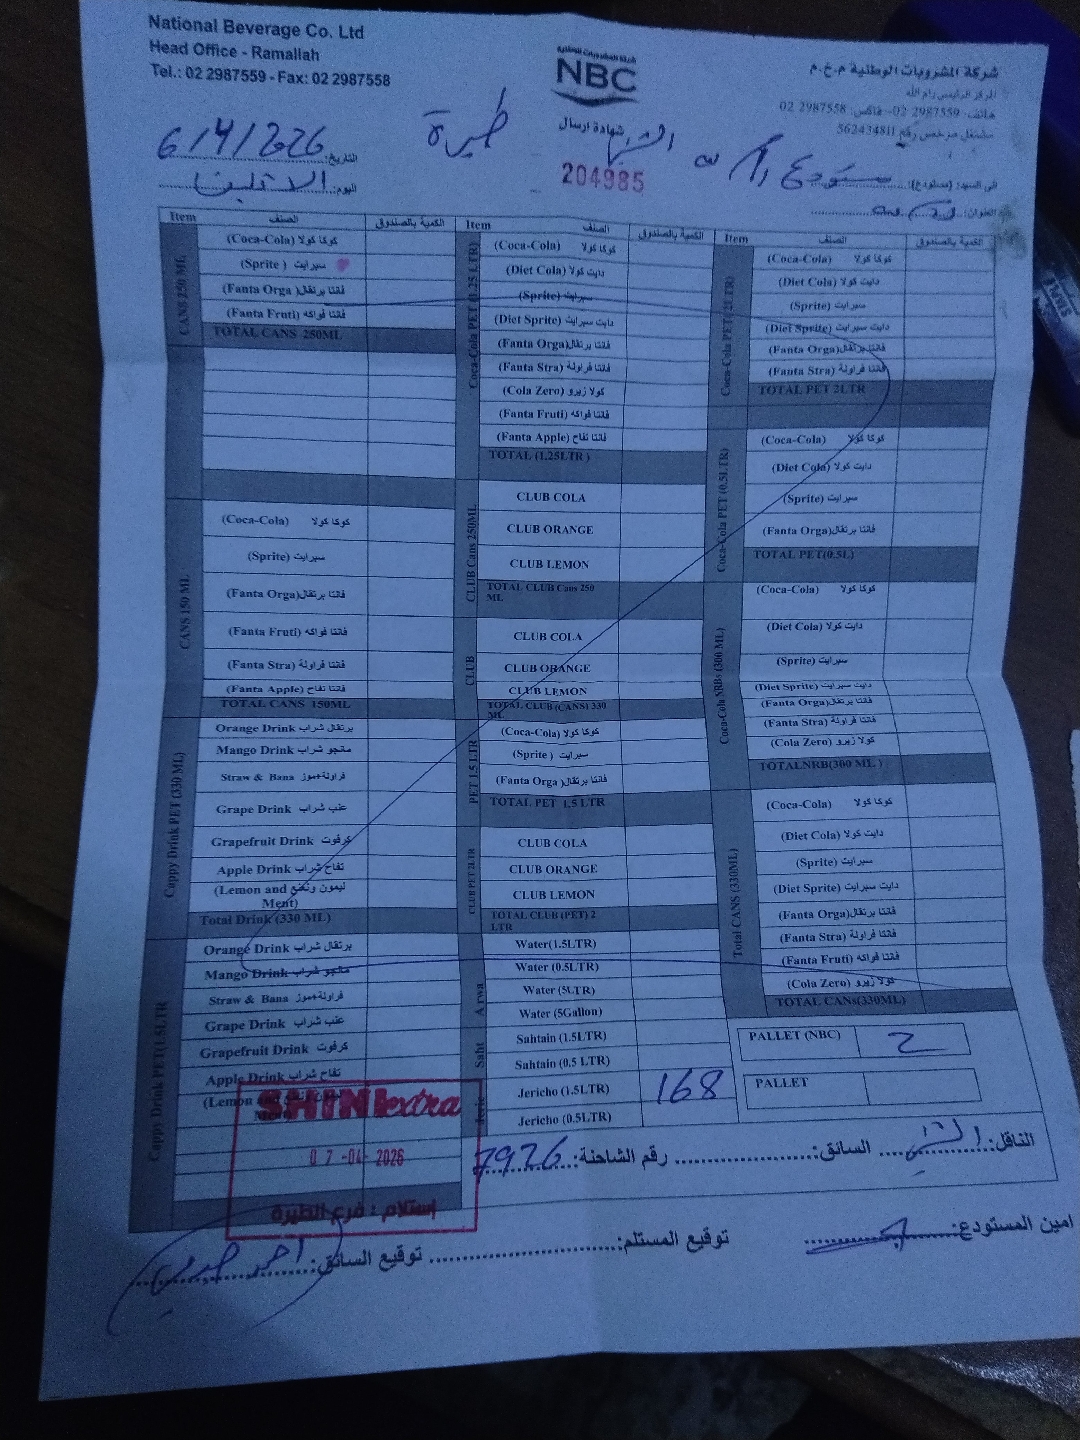 National Beverage Co. Ltd
Head Office - Ramallah
Tel.: 02 2987559 - Fax: 02 2987558
شركة المشروبات الوطنية
NBC
شركة المشروبات الوطنية م.خ.م
المركز الرئيسي رام الله
هاتف: 2987559 02- فاكس: 2987558 02
مشتغل مرخص رقم 562434811
شهادة ارسال
204985
طيرة
التاريخ: 6/4/2026
اليوم: الاثنين
الى السيد: (مستودع):
العنوان:
Item الصنف الكمية بالصندوق
CANS 250 ML
(Coca-Cola) كوكا كولا
(Sprite ) سبرايت
(Fanta Orga )فانتا برتقال
(Fanta Fruti) فانتا فواكه
TOTAL CANS 250ML
CANS 150 ML
(Coca-Cola) كوكا كولا
(Sprite) سبرايت
(Fanta Orga)فانتا برتقال
(Fanta Fruti) فانتا فواكه
(Fanta Stra) فانتا فراولة
(Fanta Apple) فانتا تفاح
TOTAL CANS 150ML
Cappy Drink PET (330 ML)
Orange Drink برتقال شراب
Mango Drink مانجو شراب
Straw & Bana فراولة+موز
Grape Drink عنب شراب
Grapefruit Drink كرفوت
Apple Drink تفاح شراب
(Lemon and ليمون ونعنع
Ment)
Total Drink (330 ML)
Cappy Drink PET(1.5LTR
Orange Drink برتقال شراب
Mango Drink مانجو شراب
Straw & Bana فراولة+موز
Grape Drink عنب شراب
Grapefruit Drink كرفوت
Apple Drink تفاح شراب
(Lemon and ليمون ونعنع
Ment)
Item الصنف الكمية بالصندوق
Coca-Cola PET (1.25 LTR)
(Coca-Cola) كوكا كولا
(Diet Cola) دايت كولا
(Sprite) سبرايت
(Diet Sprite) دايت سبرايت
(Fanta Orga)فانتا برتقال
(Fanta Stra) فانتا فراولة
(Cola Zero) كولا زيرو
(Fanta Fruti) فانتا فواكه
(Fanta Apple) فانتا تفاح
TOTAL (1.25LTR )
CLUB Cans 250ML
CLUB COLA
CLUB ORANGE
CLUB LEMON
TOTAL CLUB Cans 250
ML
CLUB
CLUB COLA
CLUB ORANGE
CLUB LEMON
TOTAL CLUB (CANS) 330
ML
PET 1.5 LTR
(Coca-Cola) كوكا كولا
(Sprite) سبرايت
(Fanta Orga )فانتا برتقال
TOTAL PET 1,5 LTR
CLUB PET 2LTR
CLUB COLA
CLUB ORANGE
CLUB LEMON
TOTAL CLUB (PET) 2
LTR
Arwa
Water(1.5LTR)
Water (0.5LTR)
Water (5LTR)
Water (5Gallon)
Saht
Sahtain (1.5LTR)
Sahtain (0.5 LTR)
Jericho (1.5LTR) 168
Jericho (0.5LTR)
Item الصنف الكمية بالصندوق
Coca-Cola PET ( 2LTR)
(Coca-Cola) كوكا كولا
(Diet Cola) دايت كولا
(Sprite) سبرايت
(Diet Sprite) دايت سبرايت
(Fanta Orga)فانتا برتقال
(Fanta Stra) فانتا فراولة
TOTAL PET 2LTR
Coca-Cola PET (0.5LTR)
(Coca-Cola) كوكا كولا
(Diet Cola) دايت كولا
(Sprite) سبرايت
(Fanta Orga)فانتا برتقال
TOTAL PET(0.5L)
Coca-Cola NRBs (300 ML)
(Coca-Cola) كوكا كولا
(Diet Cola) دايت كولا
(Sprite) سبرايت
(Diet Sprite) دايت سبرايت
(Fanta Orga)فانتا برتقال
(Fanta Stra) فانتا فراولة
(Cola Zero) كولا زيرو
TOTALNRB(300 ML )
Total CANS (330ML)
(Coca-Cola) كوكا كولا
(Diet Cola) دايت كولا
(Sprite) سبرايت
(Diet Sprite) دايت سبرايت
(Fanta Orga)فانتا برتقال
(Fanta Stra) فانتا فراولة
(Fanta Fruti) فانتا فواكه
(Cola Zero) كولا زيرو
TOTAL CANs(330ML)
PALLET (NBC) 2
PALLET
extra
07-04-2026
إستلام : فرع الطيرة
الناقل: السائق: رقم الشاحنة: 7926
امين المستودع: توقيع المستلم: توقيع السائق: